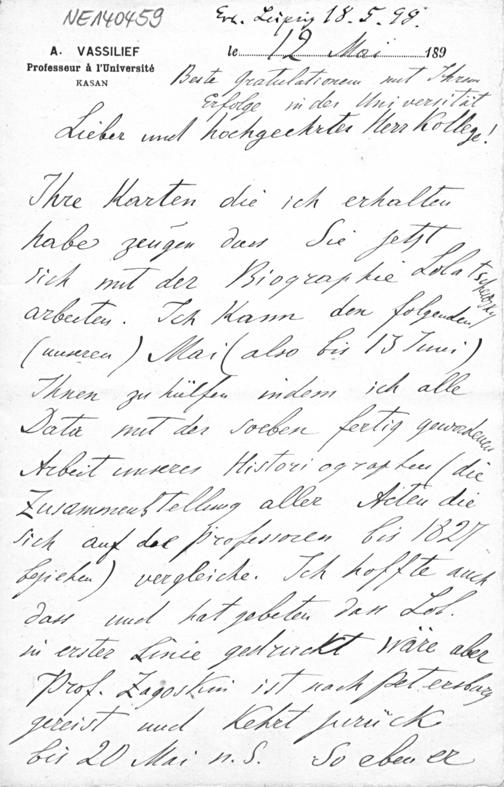 NE140459
Erh. Leipzig 18.5.98.
A. VASSILIEF
Professeur à l'Université
KASAN
le 12 Mai 189
Beste Gratulationen mit Ihrem
Erfolge in der Universität
Lieber und hochgeehrter Herr Kollege!
Ihre Karten die ich erhalten
habe zeugen dass Sie jetzt
sich mit der Biographie Lobatschefsky
arbeiten. Ich kann den folgenden
(unseren) Mai (also bis 13 Juni)
Ihnen zu hülfen indem ich alle
Data mit der soeben fertig gewordenen
Arbeit unseres Historiographen (die
Zusammenstellung aller Acten die
sich auf die Professoren bis 1827
beziehen) vergleiche. Ich hoffte auch
dass und hat gebeten dass Lob.
in erster Linie gedruckt wäre aber
Prof. Zagoskin ist nach Petersburg
gereist und kehrt zurück
bis 20 Mai n.S. So eben er